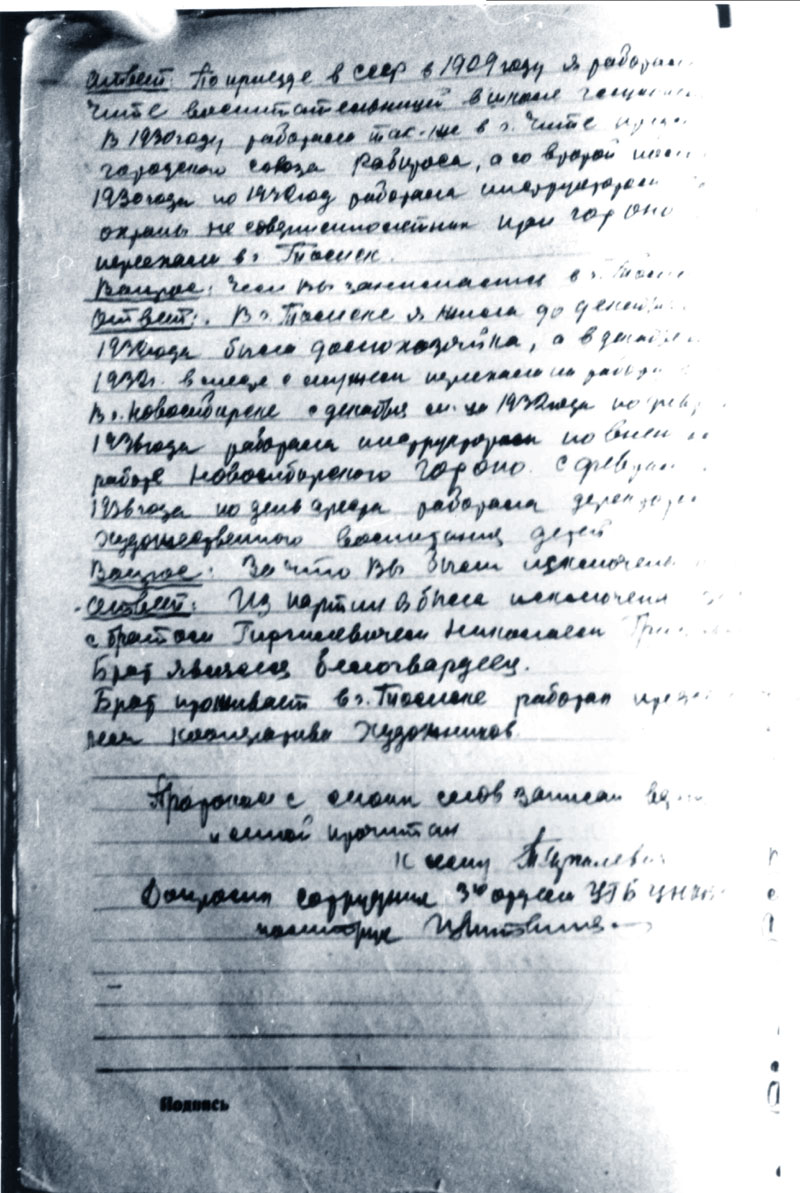 Ответ: По приезде в СССР в 1929 году я работала
Чите воспитательницей в школе
В 1930 году работала так-же в г. Чите
городского союза Рабпроса, а со второй
1930 года по 1932 год работала инструктором
охраны несовершеннолетних при гороно
переехали в г. Томск.
Вопрос: Чем Вы занимались в г. Томске
Ответ: В г. Томске я жила до декабря
1932 года была домохозяйка, а в декабре
1932 г. вместе с мужем переехали на работу
В г. Новосибирске с декабря м-ца 1932 года по февр
1936 года работала инструктором по внеш
работе Новосибирского гороно. С февраля
1936 года по день ареста работала
художественного воспитания детей
Вопрос: За что Вы были исключены
Ответ: Из партии я была исключена за
с братом Николаем
Брат являлся белогвардеец.
Брат проживает в г. Томске работал
лем кооператива Художников.
Протокол с моих слов записан верно
и мной прочитан
К сему
Допросил сотрудник 3го отдела УГБ УНКВД
Подпись